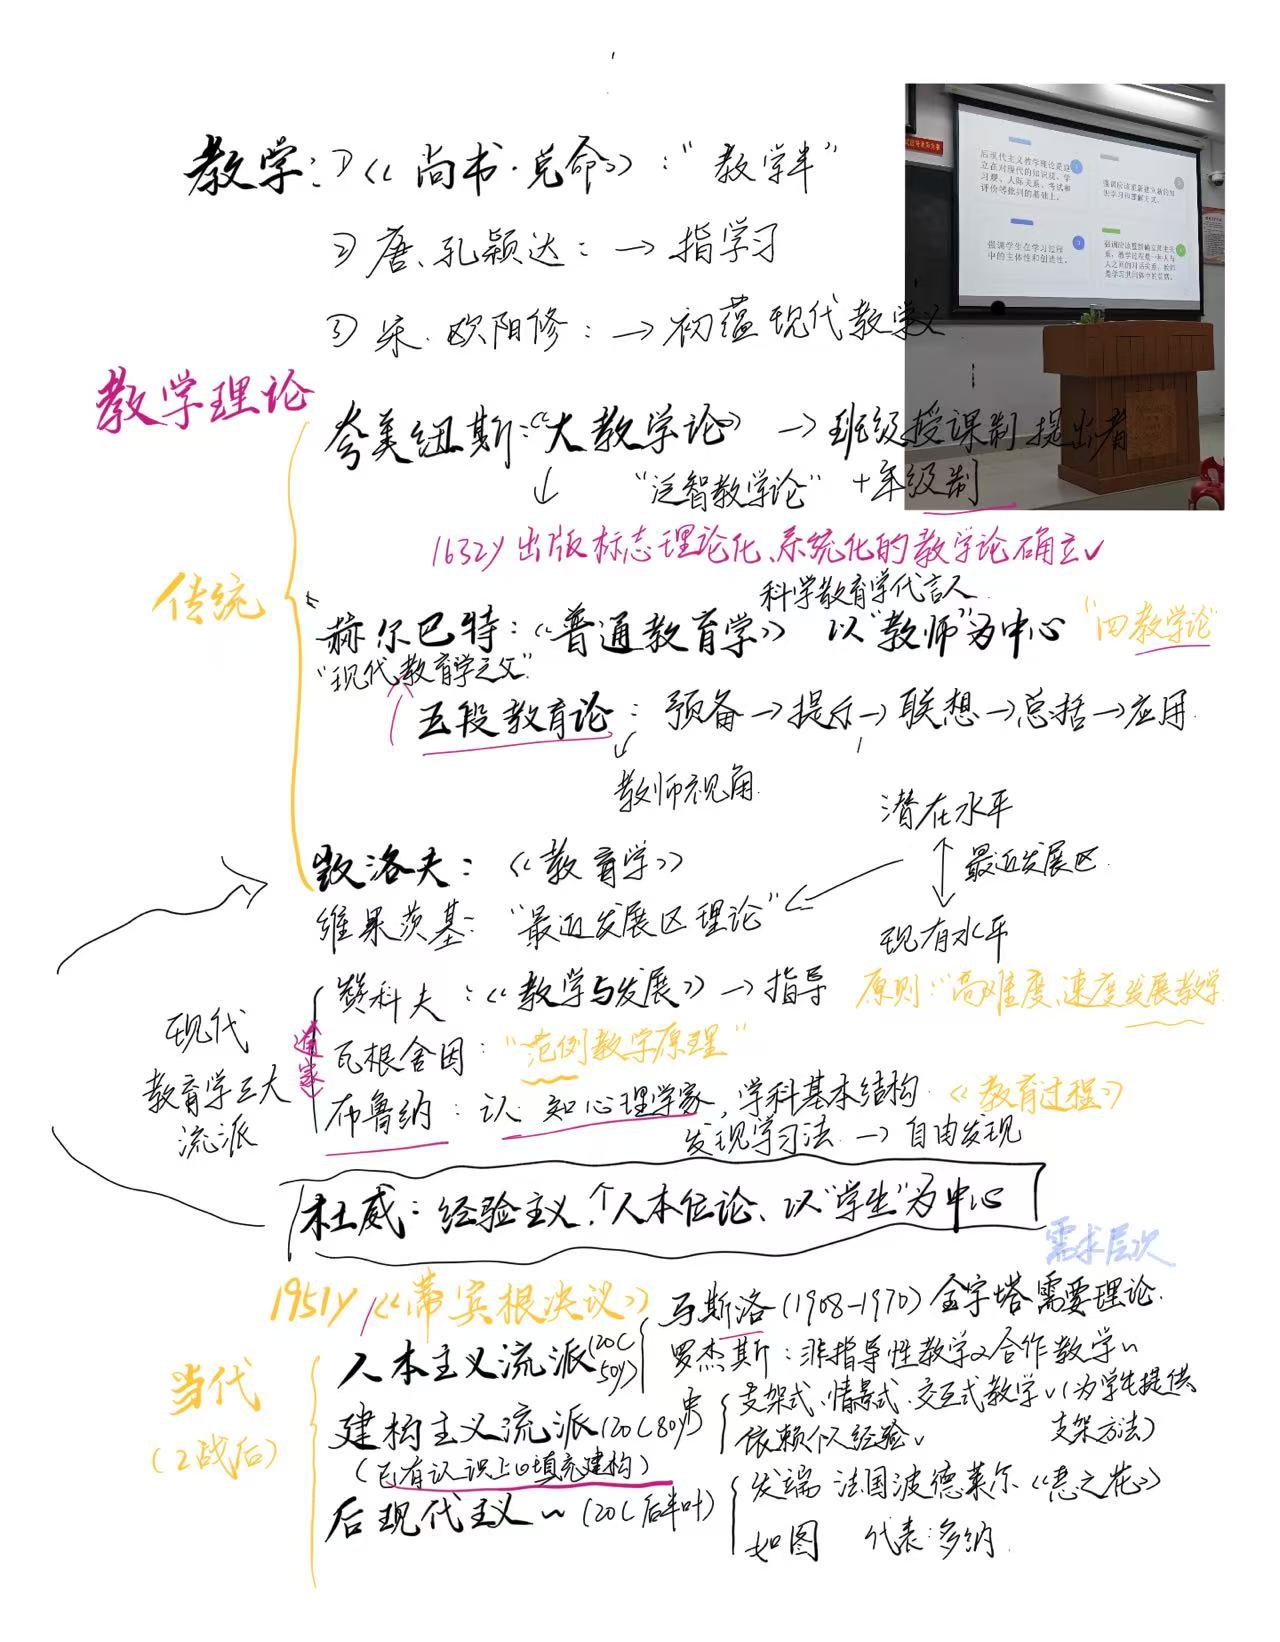 教学:①《尚书·兑命》:"教学半"
②唐、孔颖达:→指学习
③宋.欧阳修:→初蕴现代教学义
后现代主义教学理论是建立在对现代的知识观、学习观、人际关系、考试和评价等批判的基础上。
强调学生在学习过程中的主体性和创造性。
教学理论
夸美纽斯:《大教学论》→班级授课制提出者
"泛智教学论"+年级制
1632y出版标志理论化、系统化的教学论确立✓
传统
科学教育学代言人
赫尔巴特:《普通教育学》以"教师"为中心 "四教学论
"现代教育学之父"
五段教育论:预备→提示→联想→总括→应用
教师视角
潜在水平
洛夫:《教育学》
最近发展区
维果茨基:"最近发展区理论"
现有水平
赞科夫:《教学与发展》→指导 原则:"高难度、速度发展教学
现代
教育学三大
流派
瓦根舍因:"范例教学原理"
布鲁纳:认知心理学家,学科基本结构.《教育过程》
发现学习法→自由发现
杜威:经验主义,个人本位论、以"学生"为中心
需求层次
1951y《蒂宾根决议》
马斯洛(1908-1970)金字塔需要理论.
当代
(2战后)
人本主义流派(20C50y)
罗杰斯:非指导性教学 合作教学~
建构主义流派(20C80y
支架式、情景式、交互式教学✓(为学生提供支架方法)
依赖 经验✓
(已有认识上 填充建构)
后现代主义~(20C后半叶)
发端 法国波德莱尔《恶之花》
如图 代表:多纳